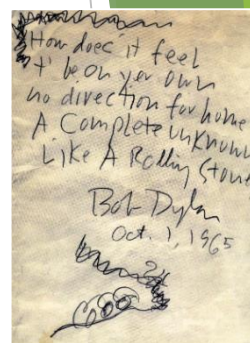 How does it feel
t' be on yer own
no direction for home
A Complete unknown
Like A Rolling Stone
Bob Dylan
Oct. 1, 1965